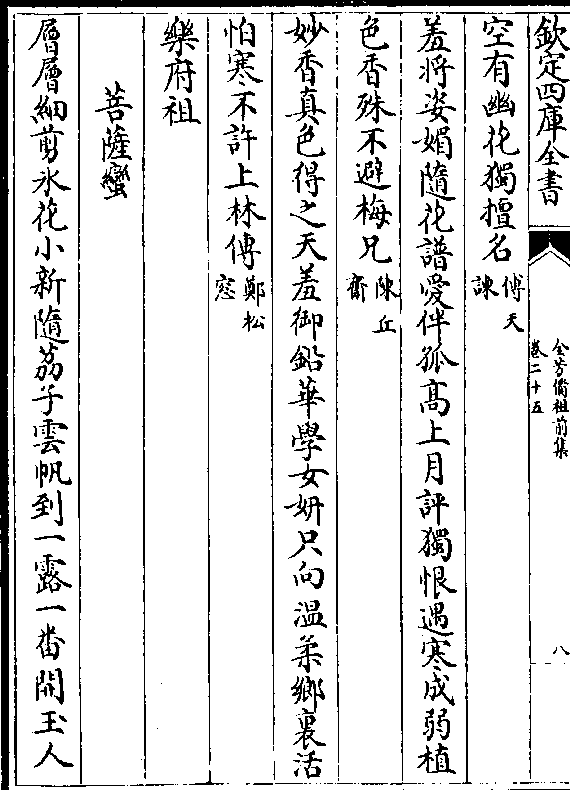 欽定四庫全書
全芳備祖前集
卷二十五
八
空有幽花獨擅名傅天諌
羞將姿媚隨花譜愛伴孤髙上月評獨恨遇寒成弱植
色香殊不避梅兄陳丘齋
妙香真色得之天羞御鉛華學女妍只向温柔鄉裏活
怕寒不許上林傳鄭松窓
樂府祖
菩薩蠻
層層細剪氷花小新隨荔子雲帆到一露一番開玉人